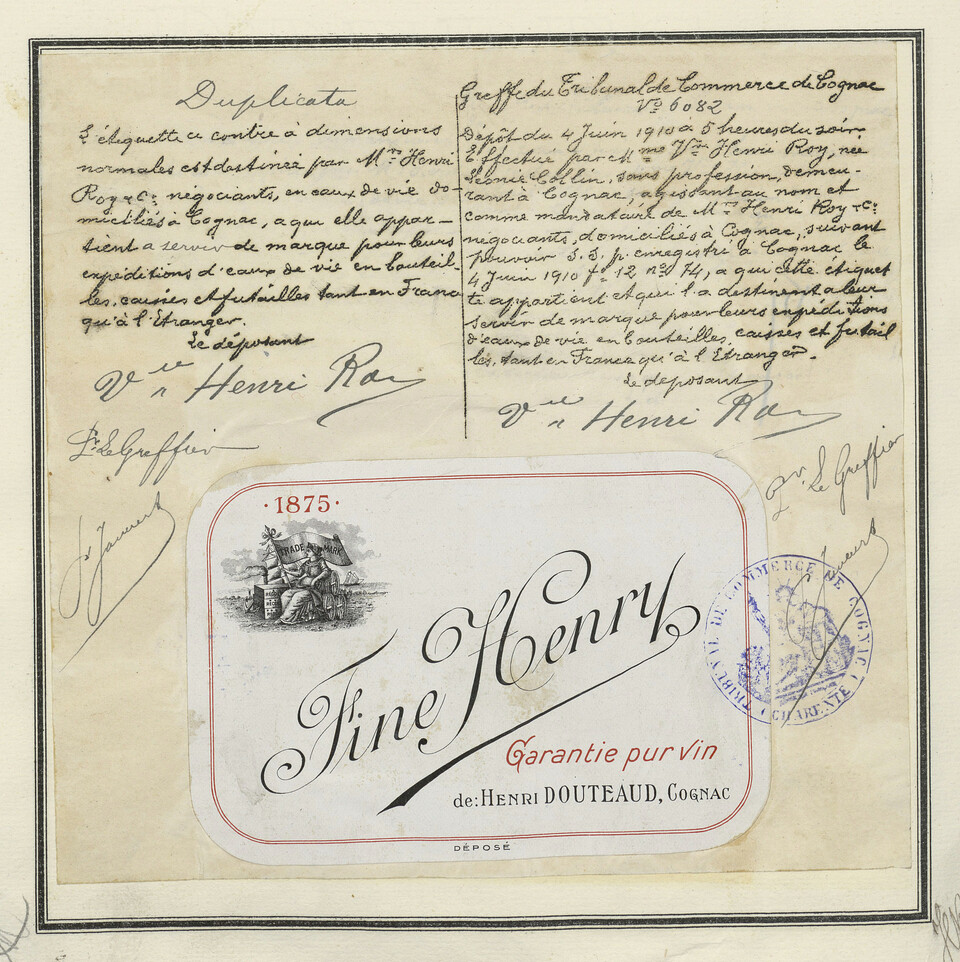 Duplicata
L'étiquette ci contre à dimensions
normales est destinée par Mrs Henri
Roy & Cie négociants, en eaux de vie do-
miciliés à Cognac, a qui elle appar-
tient a servir de marque pour leurs
expéditions d'eaux de vie en bouteil-
les, caisses et futailles tant en France
qu'à l'Etranger.
Le déposant
Vve Henri Roy
Pr Le Greffier
Greffe du Tribunal de Commerce de Cognac
No 6082
Dépôt du 4 Juin 1910 à 5 heures du soir
Effectué par Mme Vve Henri Roy, née
Léonie Collin, sans profession, demeu-
rant à Cognac, agissant au nom et
comme mandataire de Mrs Henri Roy & Cie
négociants, domiciliés à Cognac, suivant
pouvoir S.S.p. enregistré à Cognac le
4 Juin 1910 fo 12 no 74, a qui cette étiquet
te appartient et qui l'a destinent a leur
servir de marque pour leurs expéditions
d'eaux de vie en bouteilles, caisses et futail
les, tant en France qu'à l'Etranger.
Le déposant
Vve Henri Roy
Pr Le Greffier
·1875·
TRADE MARK
Fine Henry
Garantie pur vin
de: HENRI DOUTEAUD, COGNAC
DÉPOSÉ
TRIBUNAL DE COMMERCE DE COGNAC
(CHARENTE)